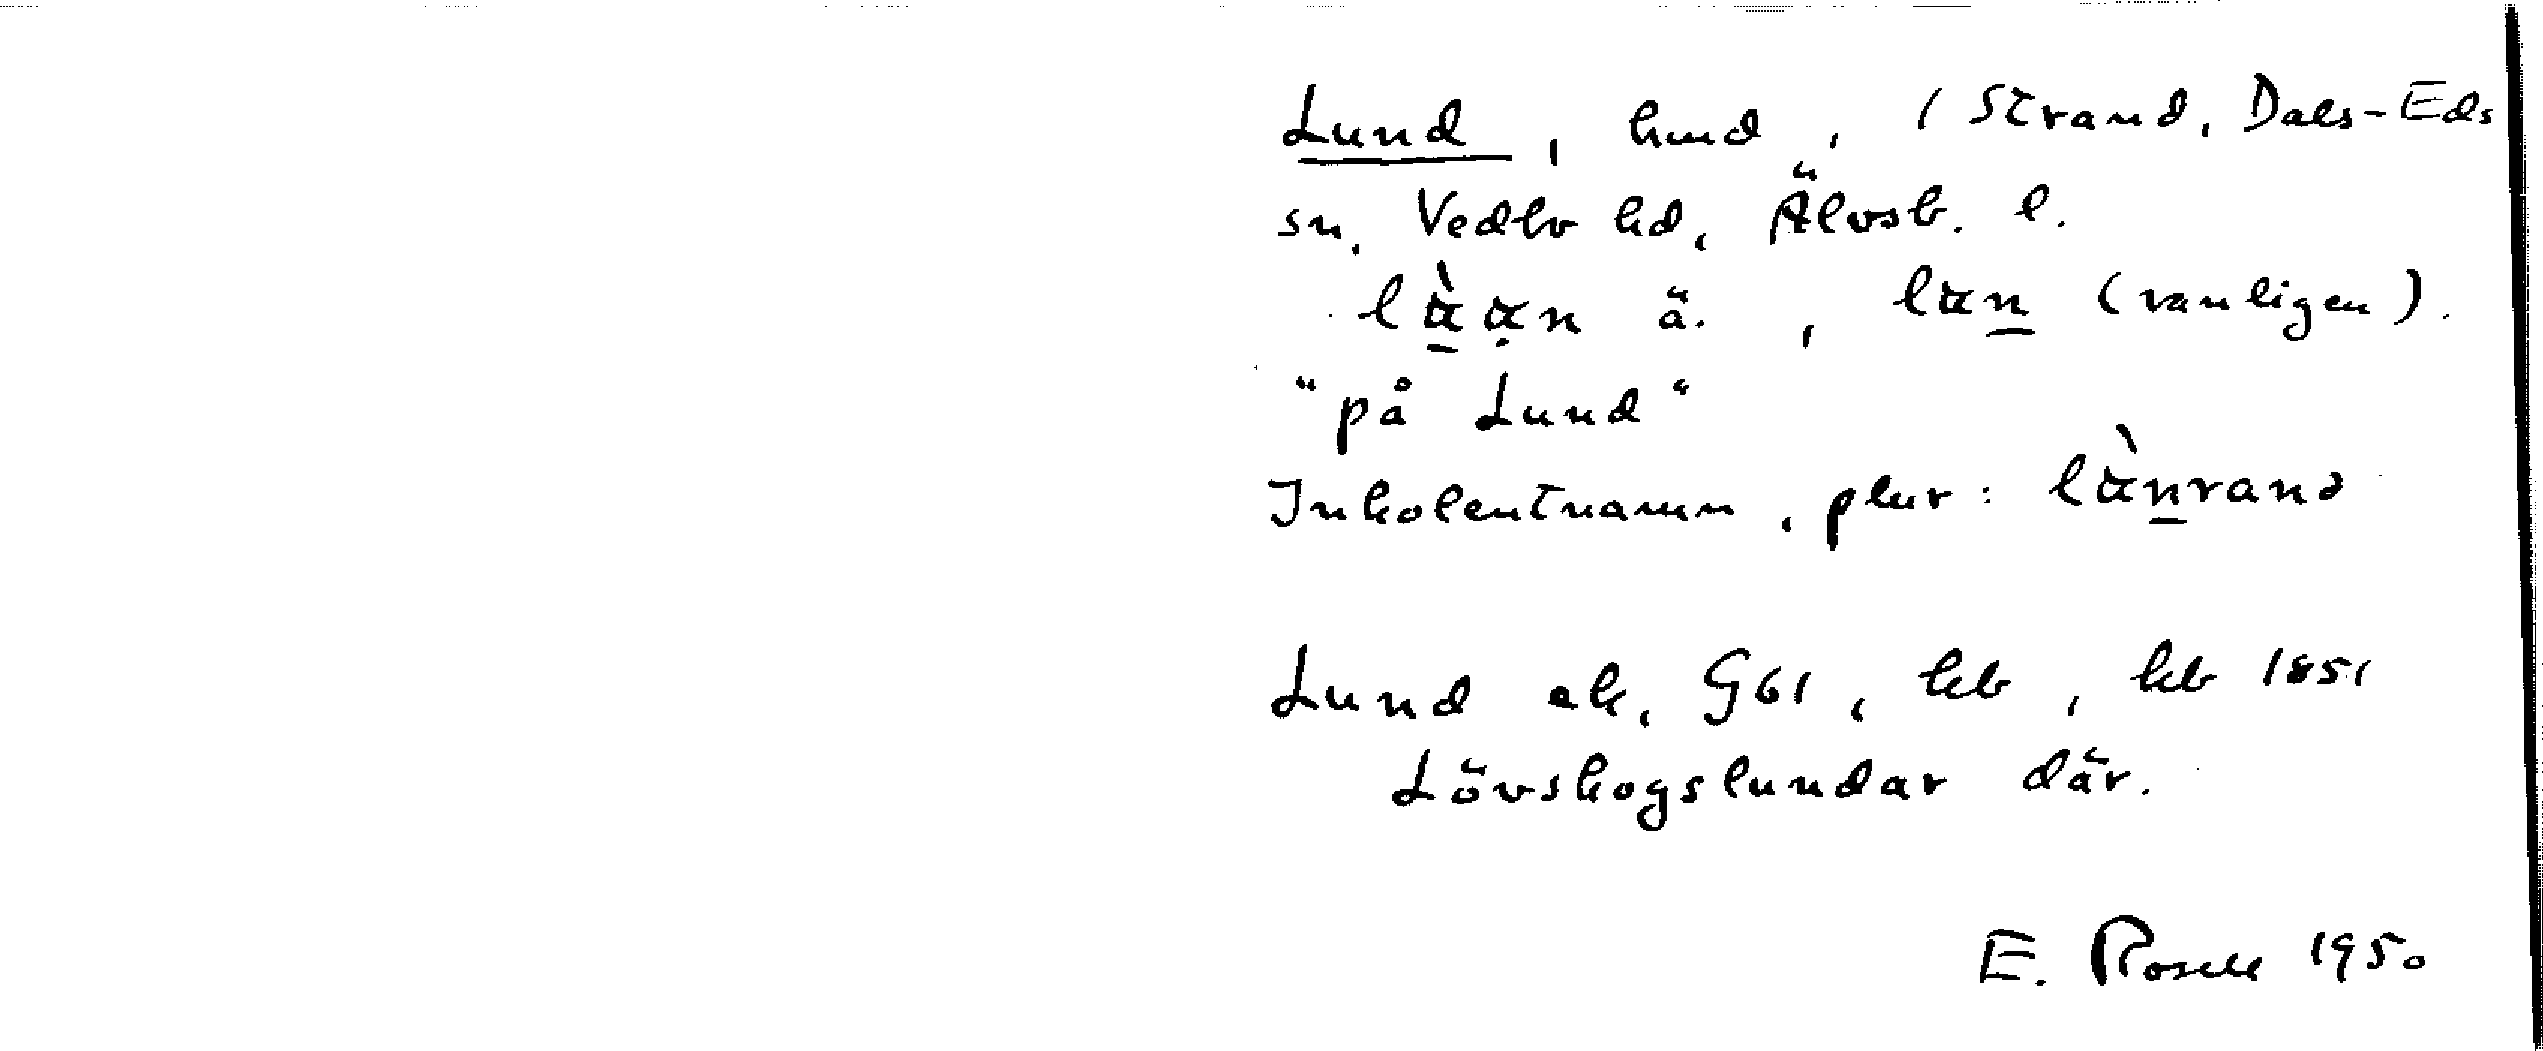 Lund, hmd, 1 Strand, Dals-Eds
sn, Vedbo hd, Älvsb. l.
lὰ̱α̣n ä., lαṉ (vanligen).
"på Lund"
Inbolentnamn, plur: lὰṉranə
Lund ek, G61, kb, kb 1851
Lövskogslundar där.
E. Rosell 1950